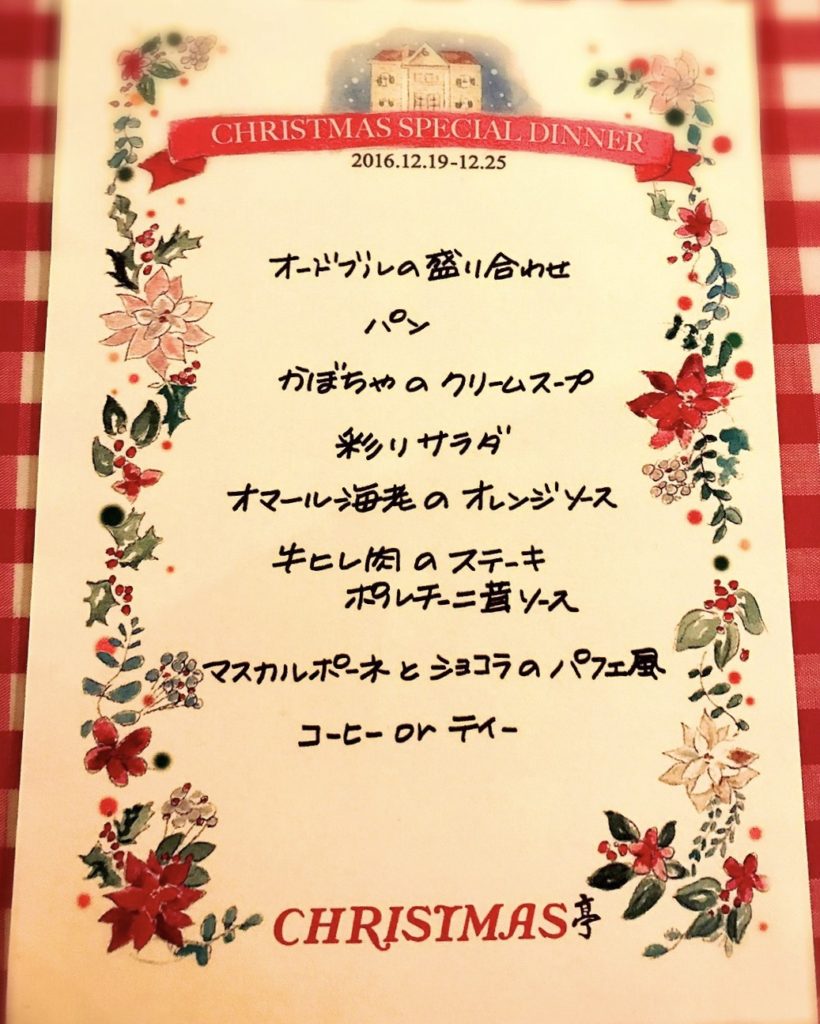 CHRISTMAS SPECIAL DINNER
2016.12.19-12.25
オードブルの盛り合わせ
パン
かぼちゃのクリームスープ
彩りサラダ
オマール海老のオレンジソース
牛ヒレ肉のステーキ
ポルチーニ茸ソース
マスカルポーネとショコラのパフェ風
コーヒー or ティー
CHRISTMAS亭